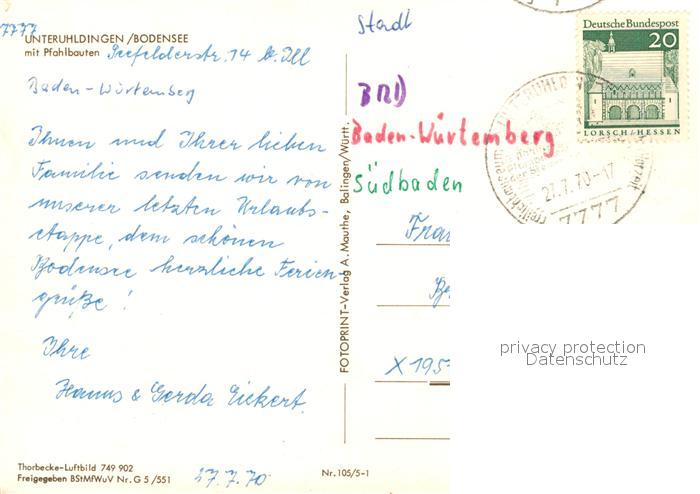 7777
UNTERUHLDINGEN /BODENSEE
mit Pfahlbauten Seefelderstr. 14 b. Ill
Baden-Würtemberg
Ihnen und Ihrer lieben
Familie senden wir von
unserer letzten Urlaubs-
etappe, dem schönen
Bodensee herzliche Ferien-
grüße!
Ihre
Hanns & Gerda Eickert.
Thorbecke-Luftbild 749 902
Freigegeben BStMfWuV Nr. G 5 /551
27.7.70
Nr. 105/5-1
FOTOPRINT-Verlag A. Mauthe, Balingen/Württ.
Stadt
BRD
Baden-Würtemberg
Südbaden
Deutsche Bundespost
20
LORSCH/HESSEN
27.7.70-17
7777
Frau
X 195
privacy protection
Datenschutz